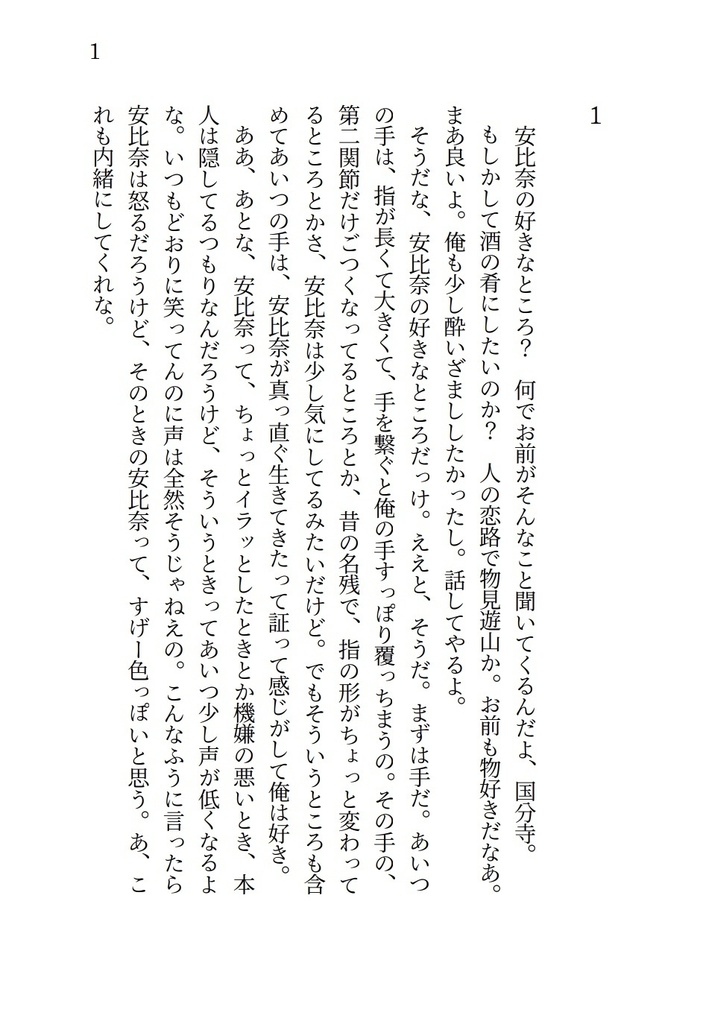 1
1
　安比奈の好きなところ？　何でお前がそんなこと聞いてくるんだよ、国分寺。
　もしかして酒の肴にしたいのか？　人の恋路で物見遊山か。お前も物好きだなあ。
まあ良いよ。俺も少し酔いざまししたかったし。話してやるよ。
　そうだな、安比奈の好きなところだっけ。ええと、そうだ。まずは手だ。あいつ
の手は、指が長くて大きくて、手を繋ぐと俺の手すっぽり覆っちまうの。その手の、
第二関節だけごつくなってるところとか、昔の名残で、指の形がちょっと変わって
るところとかさ、安比奈は少し気にしてるみたいだけど。でもそういうところも含
めてあいつの手は、安比奈が真っ直ぐ生きてきたって証って感じがして俺は好き。
　ああ、あとな、安比奈って、ちょっとイラッとしたときとか機嫌の悪いとき、本
人は隠してるつもりなんだろうけど、そういうときってあいつ少し声が低くなるよ
な。いつもどおりに笑ってんのに声は全然そうじゃねえの。こんなふうに言ったら
安比奈は怒るだろうけど、そのときの安比奈って、すげー色っぽいと思う。あ、こ
れも内緒にしてくれな。